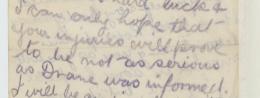 hard luck &
I can only hope that
your injuries will prove
to be not as serious
as Drane was informed.
I will be